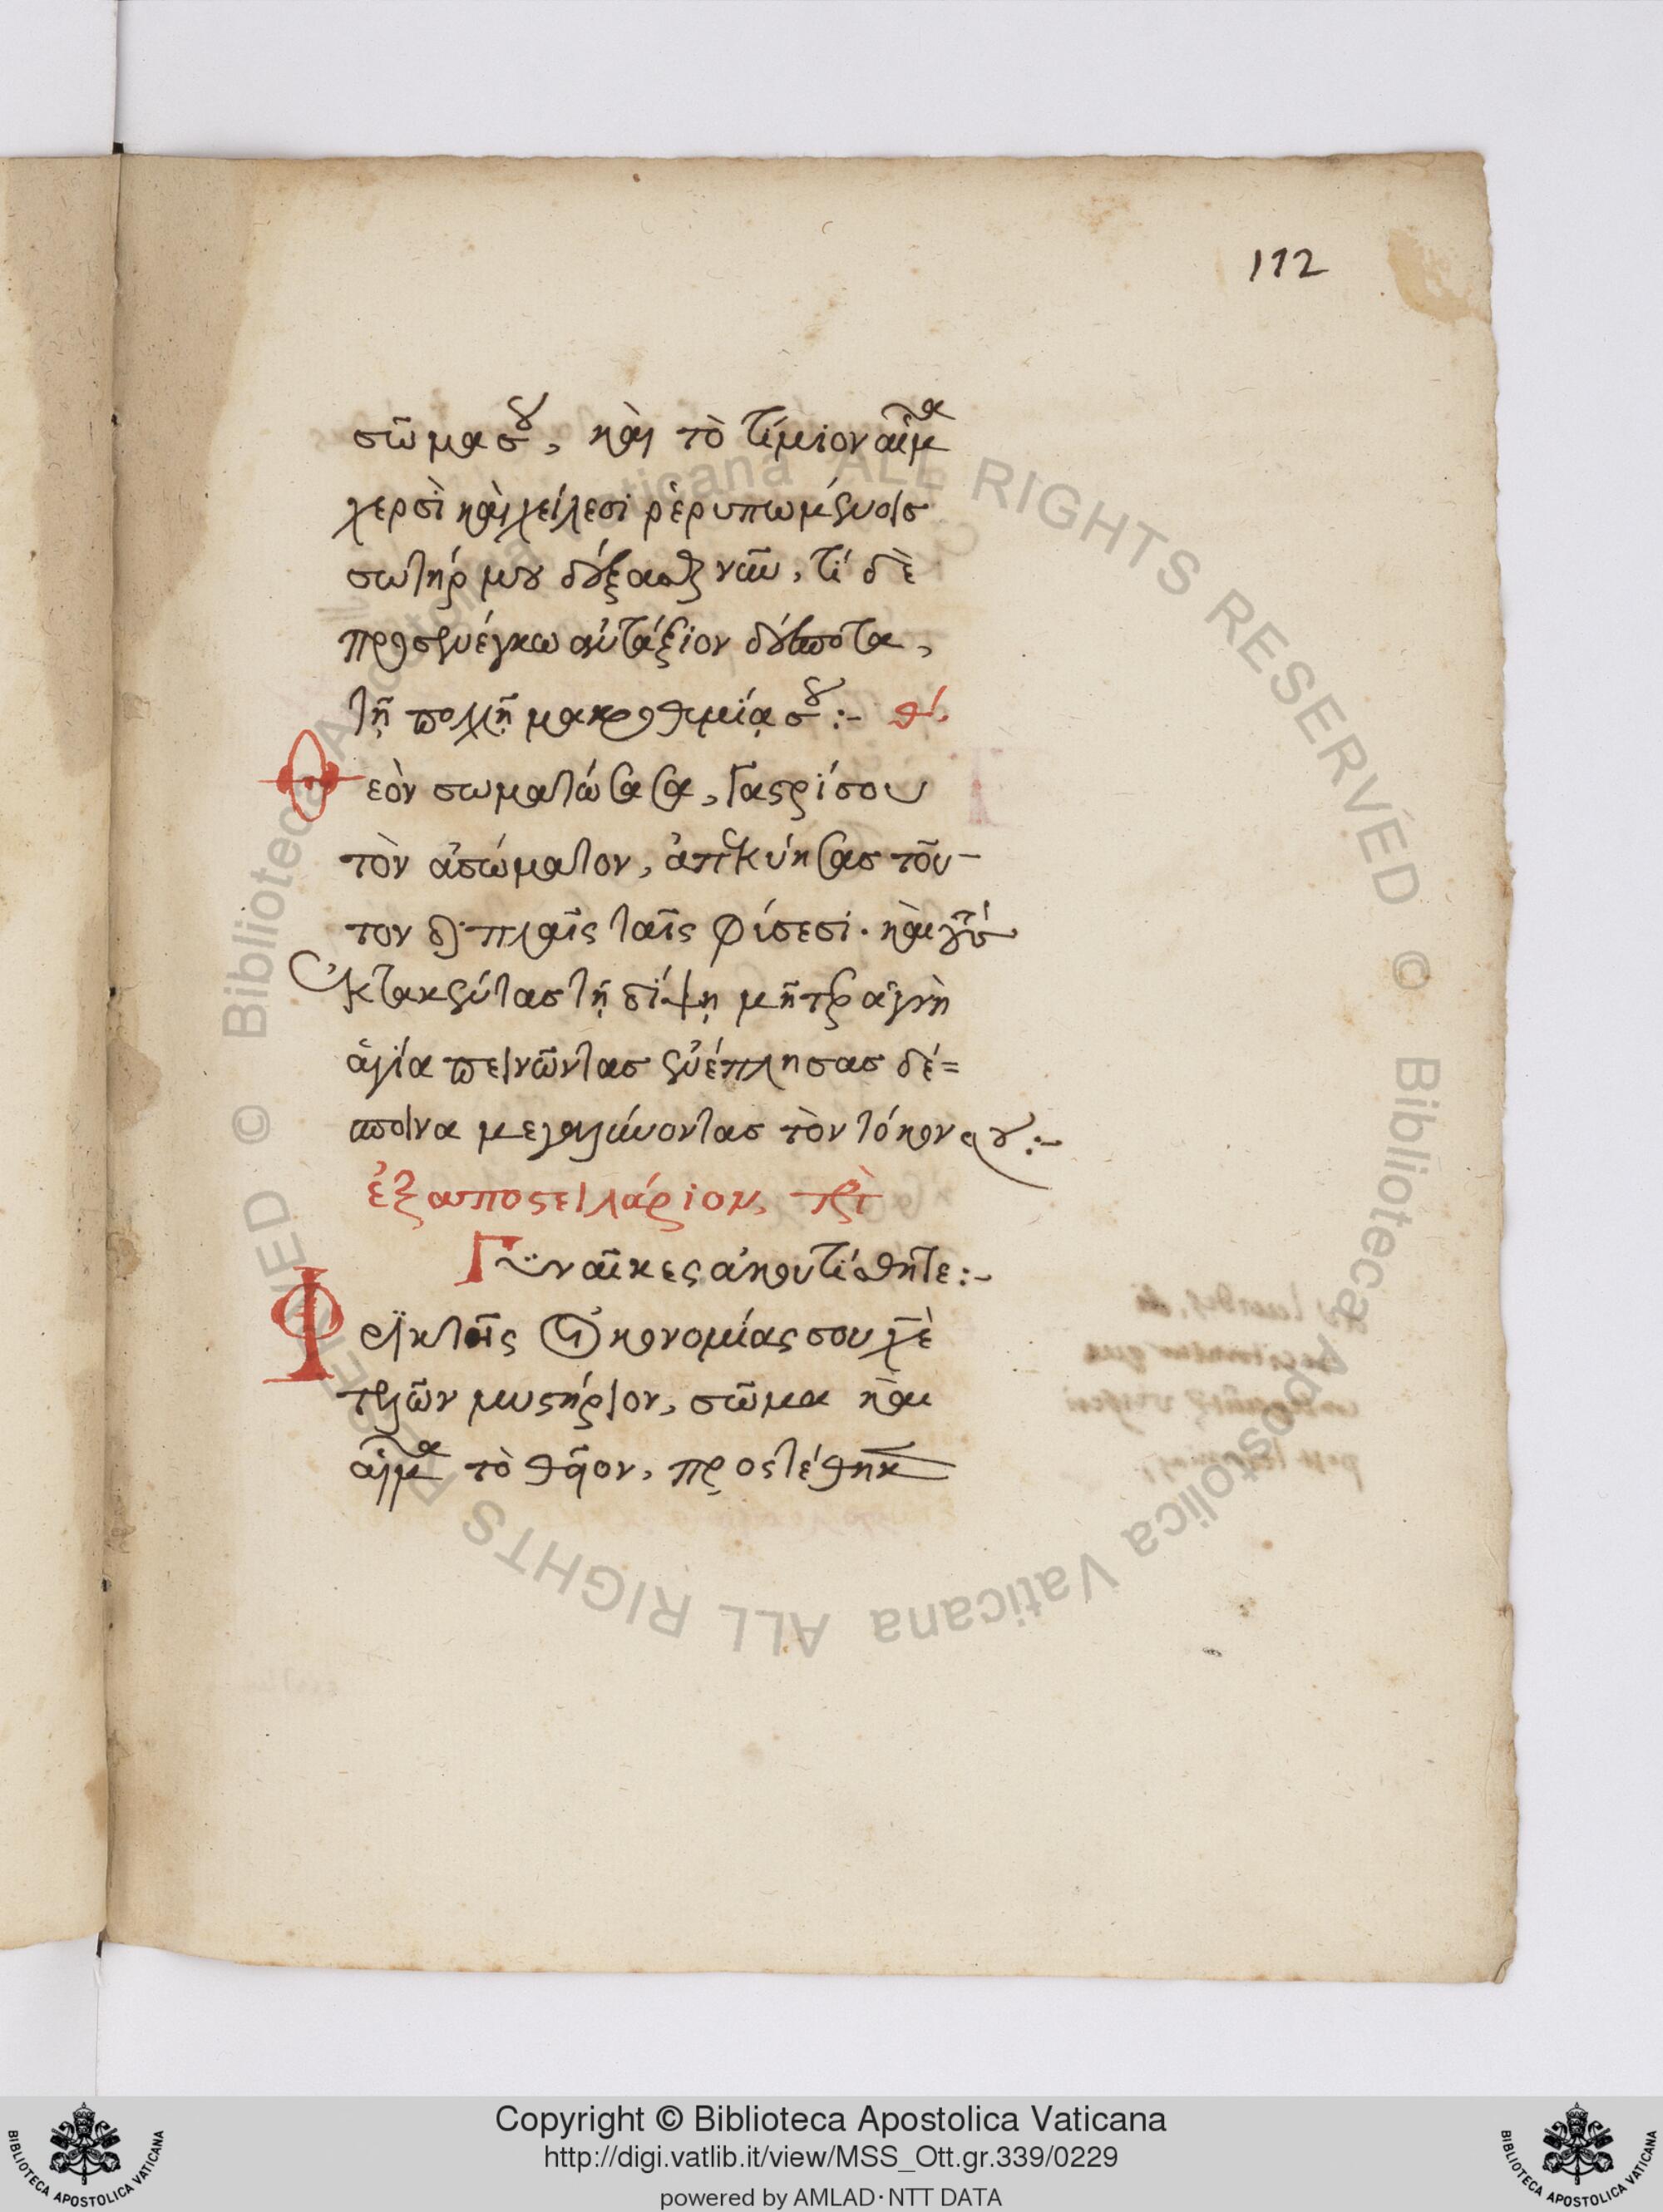 112
σῶμα σου, καὶ τὸ τίμιον αἷμα
χερσὶ καὶ χείλεσι ῥερυπωμένοις
σωτήρ μου δέξασθαι νῦν, τί δὲ
προσενέγκω ἀντάξιον δέσποτα,
τῇ πολλῇ μακροθυμίᾳ σου :- θ΄.
Θεὸν σωματώσασα, γαστρί σου
τὸν ἀσώματον, ἀπεκύησας τοῦ-
τον διπλαῖς ταῖς φύσεσι· καὶ
ἐκτακέντας τῇ δίψῃ μῆτερ ἁγνὴ
ἁγία πεινῶντας ἐνέπλησας δέ=
σποινα μεγαλύνοντας τὸν τόκον σου :-
ἐξαποστειλάριον, πρὸς τὸ
Γυναῖκες ἀκουτίσθητε :-
Φρικτῆς οἰκονομίας σου χε
τελῶν μυστήριον, σῶμα καὶ
αἷμα τὸ θεῖον, προστέθηκ
Copyright © Biblioteca Apostolica Vaticana
http://digi.vatlib.it/view/MSS_Ott.gr.339/0229
powered by AMLAD·NTT DATA
BIBLIOTECA APOSTOLICA VATICANA
BIBLIOTECA APOSTOLICA VATICANA
© Biblioteca Apostolica Vaticana ALL RIGHTS RESERVED © Biblioteca Apostolica Vaticana ALL RIGHTS RESERVED